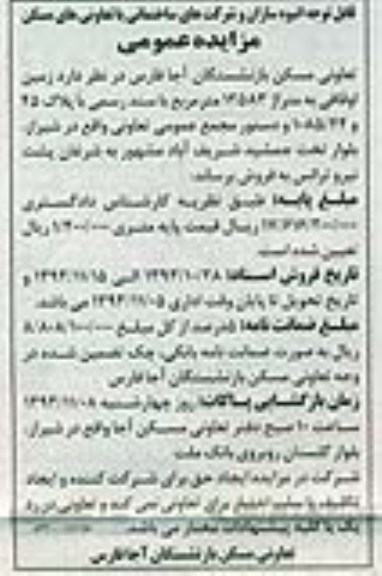 قابل توجه انبوه سازان و شرکت های ساختمانی یا تعاونی های مسکن
مزایده عمومی
تعاونی مسکن بازنشستگان آجا فارس در نظر دارد زمین
اوقافی به متراژ ۱۴۵۸۳ مترمربع با سند رسمی با پلاک ۲۵
و دستور مجمع عمومی تعاونی واقع در شیراز،
بلوار تخت جمشید شریف آباد مشهور به شرغان پشت
نیرو ترانس به فروش برساند.
مبلغ پایه: طبق نظریه کارشناس دادگستری
ریال قیمت پایه متری ریال
تعیین شده است.
تاریخ فروش اسناد: ۱۳۹۳/۱۰/۲۸ الی ۱۳۹۳/۱۱/۱۵ و
تاریخ تحویل تا پایان وقت اداری ۱۳۹۳/۱۱/۰۵ می باشد.
مبلغ ضمانت نامه: ۵درصد از کل مبلغ
ریال به صورت ضمانت نامه بانکی، چک تضمین شده در
وجه تعاونی مسکن بازنشستگان آجا فارس
زمان بازگشایی پاکات: روز چهارشنبه ۱۳۹۳/۱۱/۰۸
ساعت ۱۰ صبح دفتر تعاونی مسکن آجا واقع در شیراز،
بلوار گلستان روبروی بانک ملت
شرکت در مزایده ایجاد حق برای شرکت کننده و ایجاد
تکلیف یا سلب اختیار برای تعاونی نمی کند و تعاونی در رد
یک یا کلیه پیشنهادات مختار می باشد.
تعاونی مسکن بازنشستگان آجا فارس